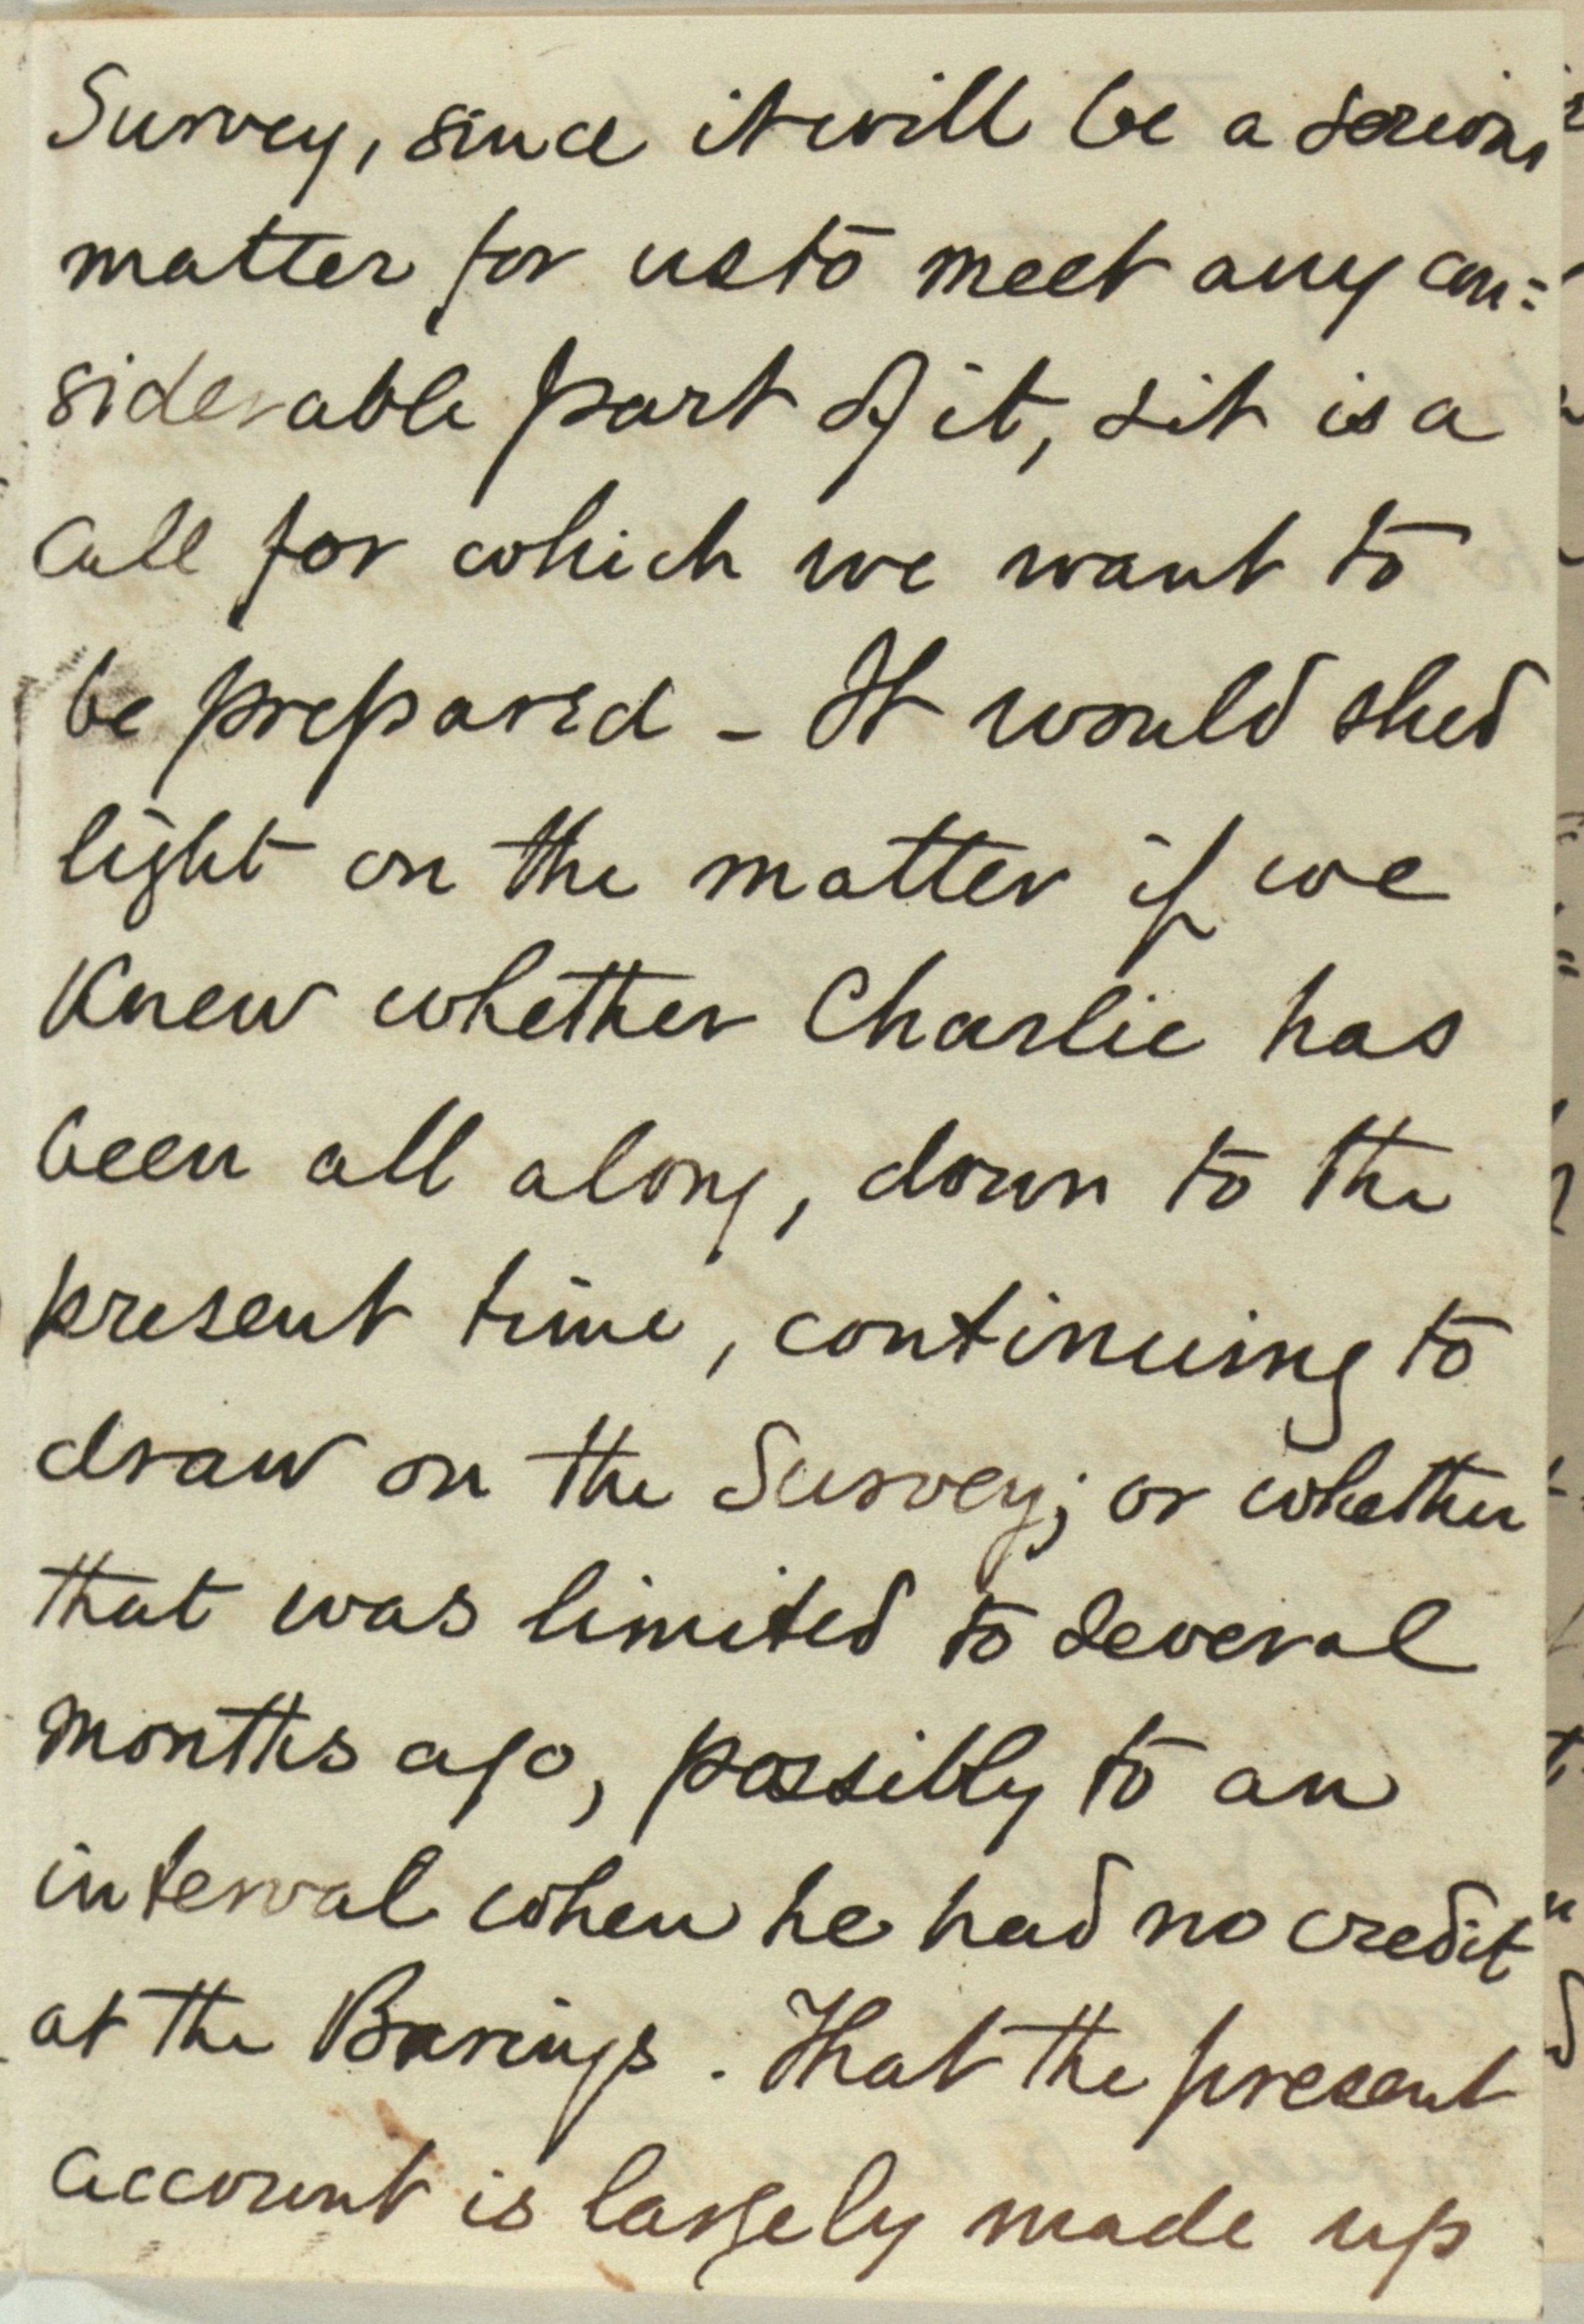 Survey, since it will be a serious
matter for us to meet any con=
siderable part of it, & it is a
call for which we want to
be prepared - It would shed
light on the matter if we
knew whether Charlie has
been all along, down to the
present time, continuing to
draw on the Survey; or whether
that was limited to several
months ago, possibly to an
interval when he had no credit
at the Barings. That the present
account is largely made up